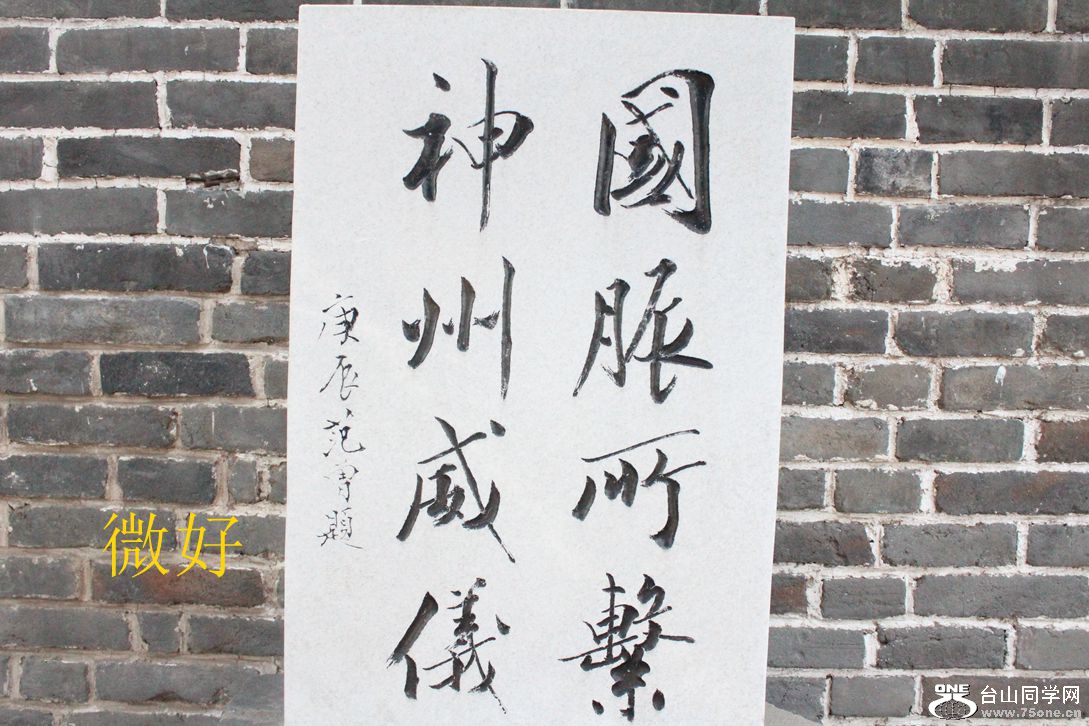 國脈所繫
神州威儀
庚辰范曾題
微好
ONE 台山同学网
www.75one.cn